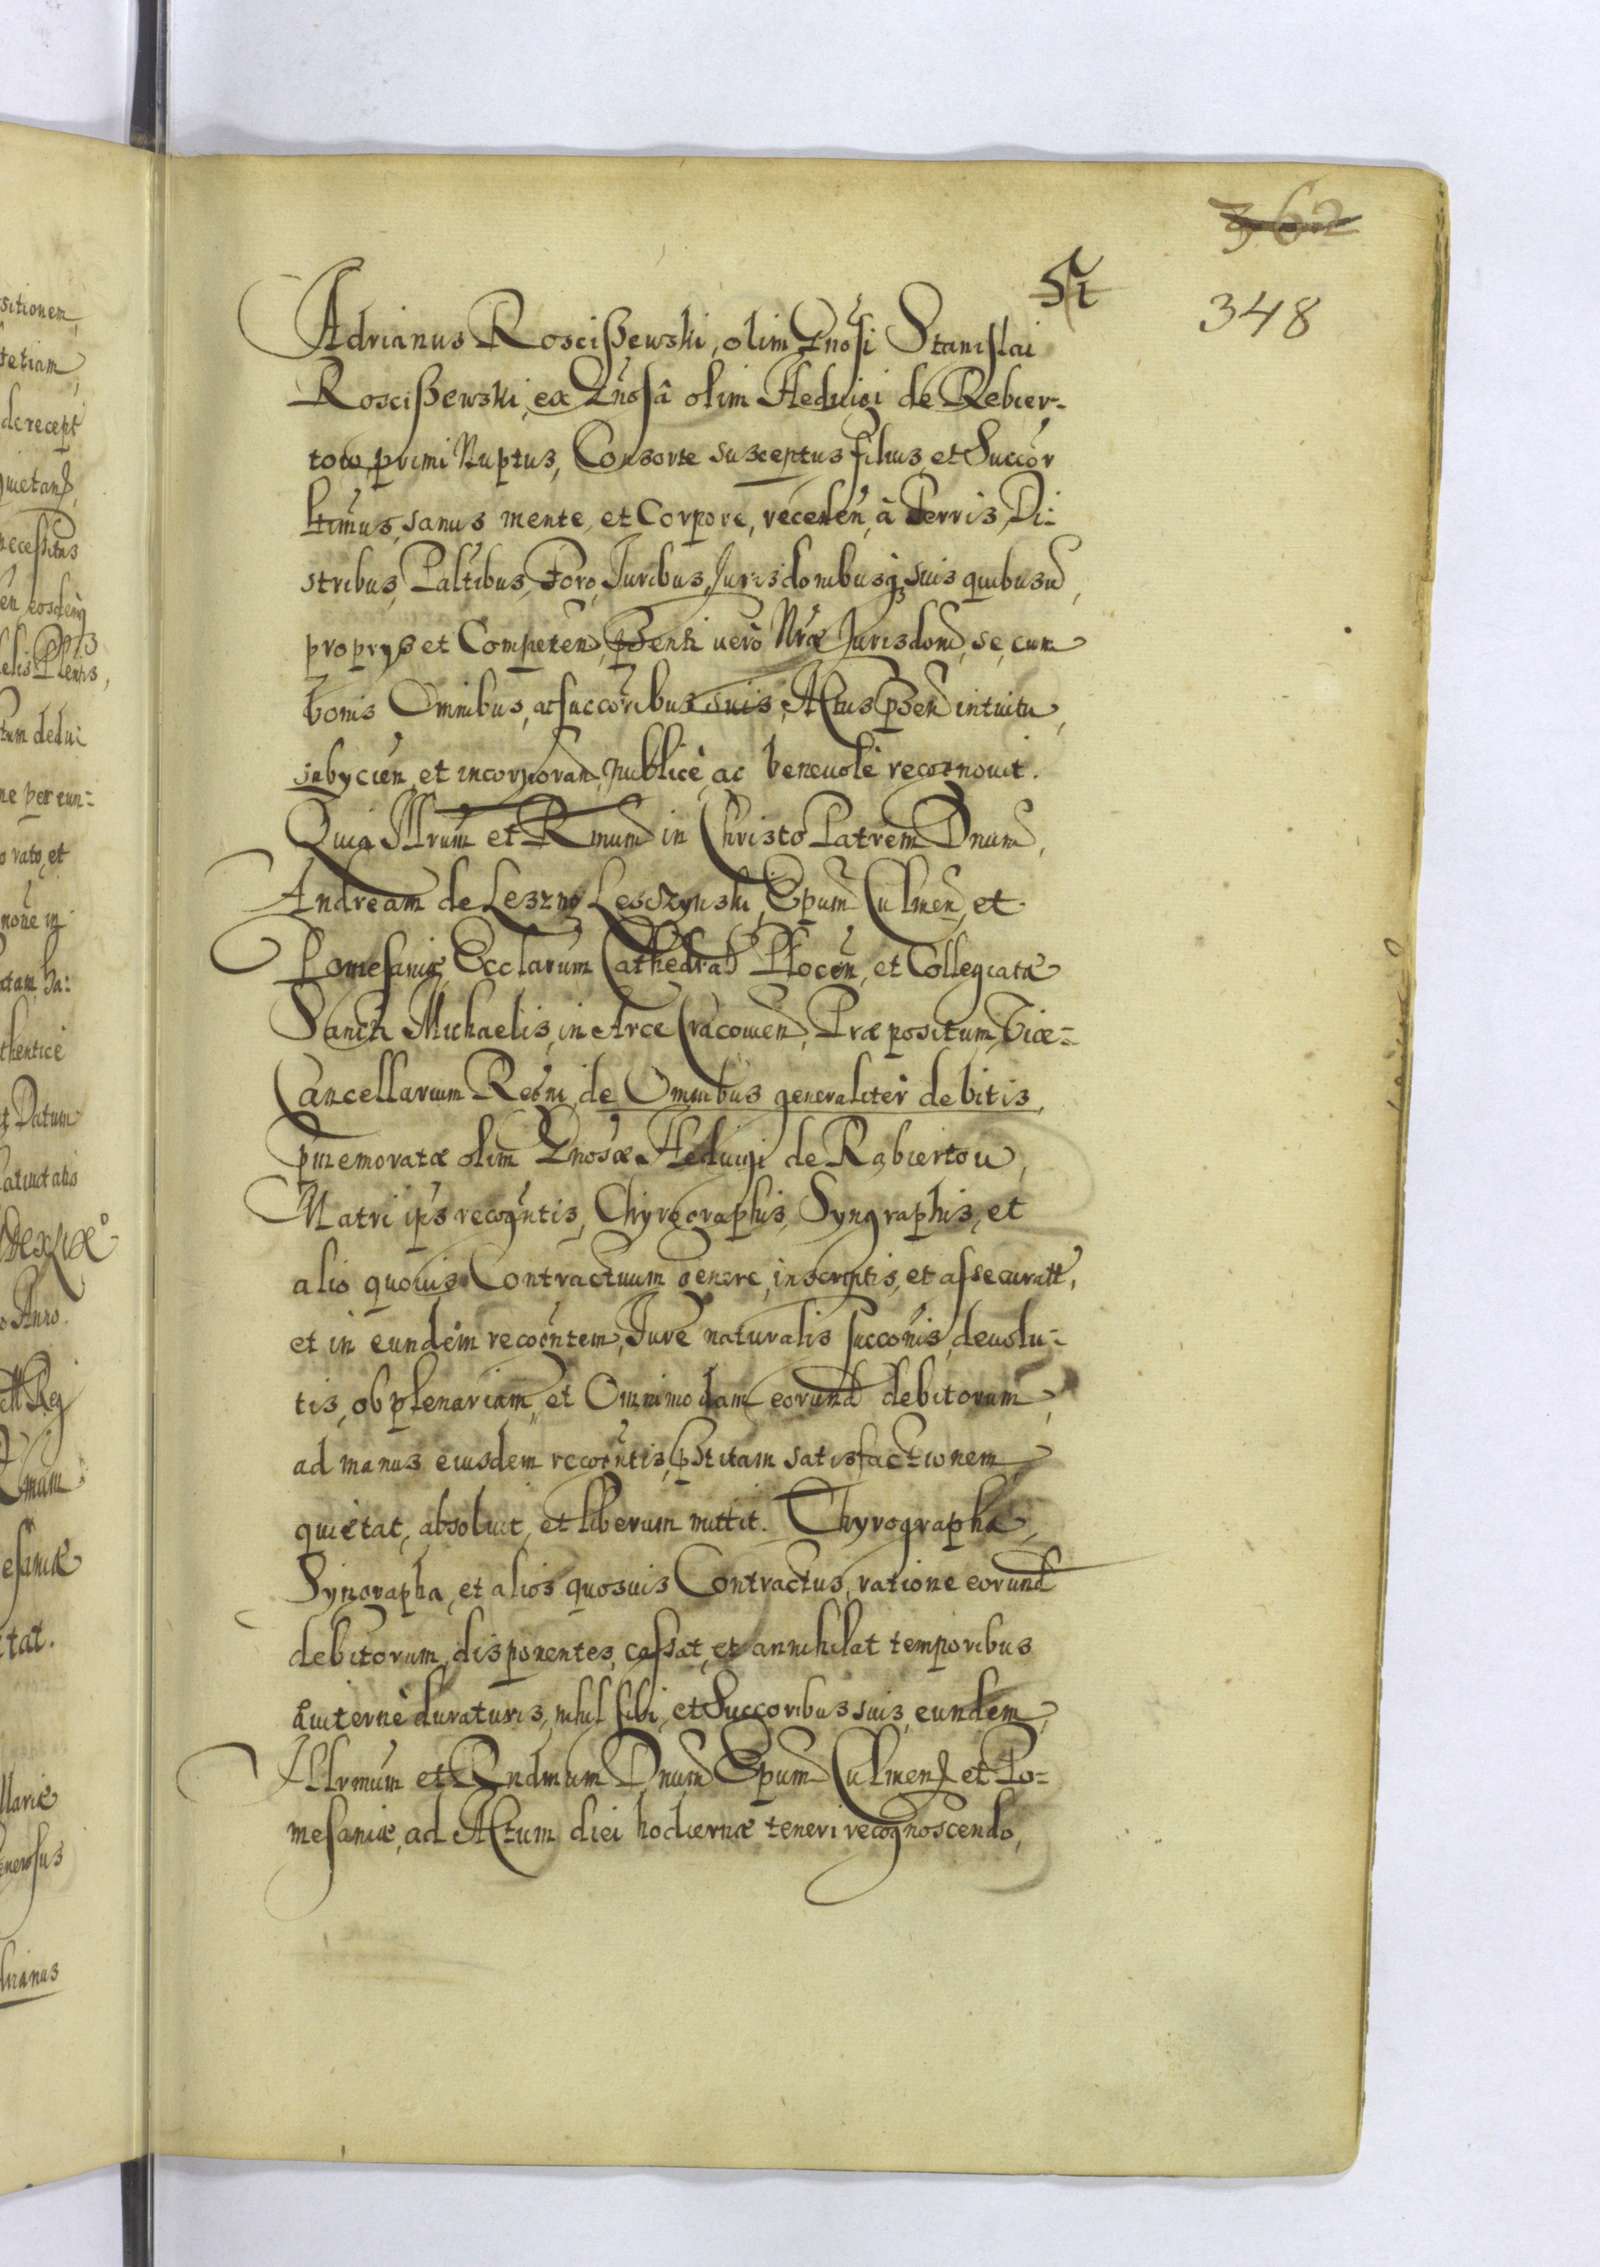 362
348
Adrianus Roscißewski, olim Gnosi Stanislai
Roscißewski, ex Gnosâ olim Heduigi de Rebier-
tow, primi Nuptus, Consorte susceptus filius, et Succor
ltimus, sanus mente, et Corpore, receden, à Terris, Di-
stribus, Paltibus, Foro, Juribus, Jurisdonibusq suis quibusu,
proprys et Competen, psenti uerò Nrae Jurisdoni, se, cum
bonis Omnibus, ac succoribus suis, Actus psen intuitu,
subycien, et incorporan, publicè, ac beneuolè recognouit.
Quia Illrum et Rmum in Christo Patrem Dnum,
Andream de Leszno Lesczynski, Epum Culmen, et
Pomesaniæ, Ecclarum Cathedral Plocen, et Collegiatæ
Sancti Michaelis, in Arce Cracouien, Præpositum, Vice-
Cancellarium Regni, de Omnibus generaliter debitis,
pmemoratæ olim Gnosæ Heduigi de Rabiertow,
Matri ips recogntis, Chyrographis, Syngraphis, et
alio quouis Contractuum genere, inscriptis, et assecuratt,
et in eundem recogntem, Jure naturalis succonis, deuolu-
tis, ob plenariam, et Omnimodam eorund debitorum,
ad manus eiusdem recogntis, pstitam satisfactionem,
quietat, absoluit, et liberum mittit. Chyrographa,
Syngrapha, et alios quosuis Contractus, ratione eorund
debitorum, disponentes, cassat, et annihilat temporibus
æuiternè duraturis, nihil sibi, et Succoribus suis, eundem,
Illrmum et Rndmum Dnum Epum Culmen et Po-
mesaniæ, ad Actum diei hodiernæ teneri recognoscendo,